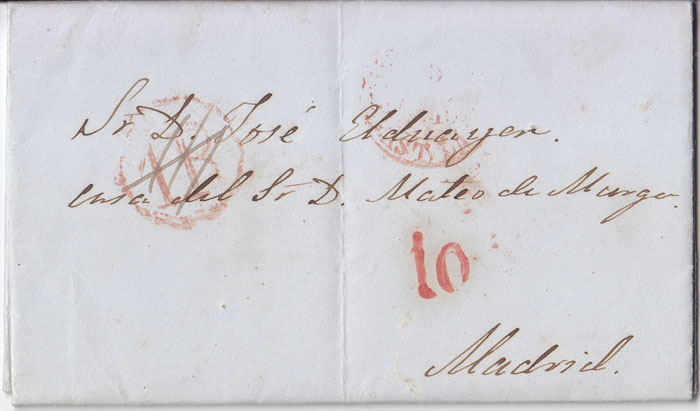 Sr. D. José Elduayen.
casa del Sr. D. Mateo de Murga.
10
Madrid.